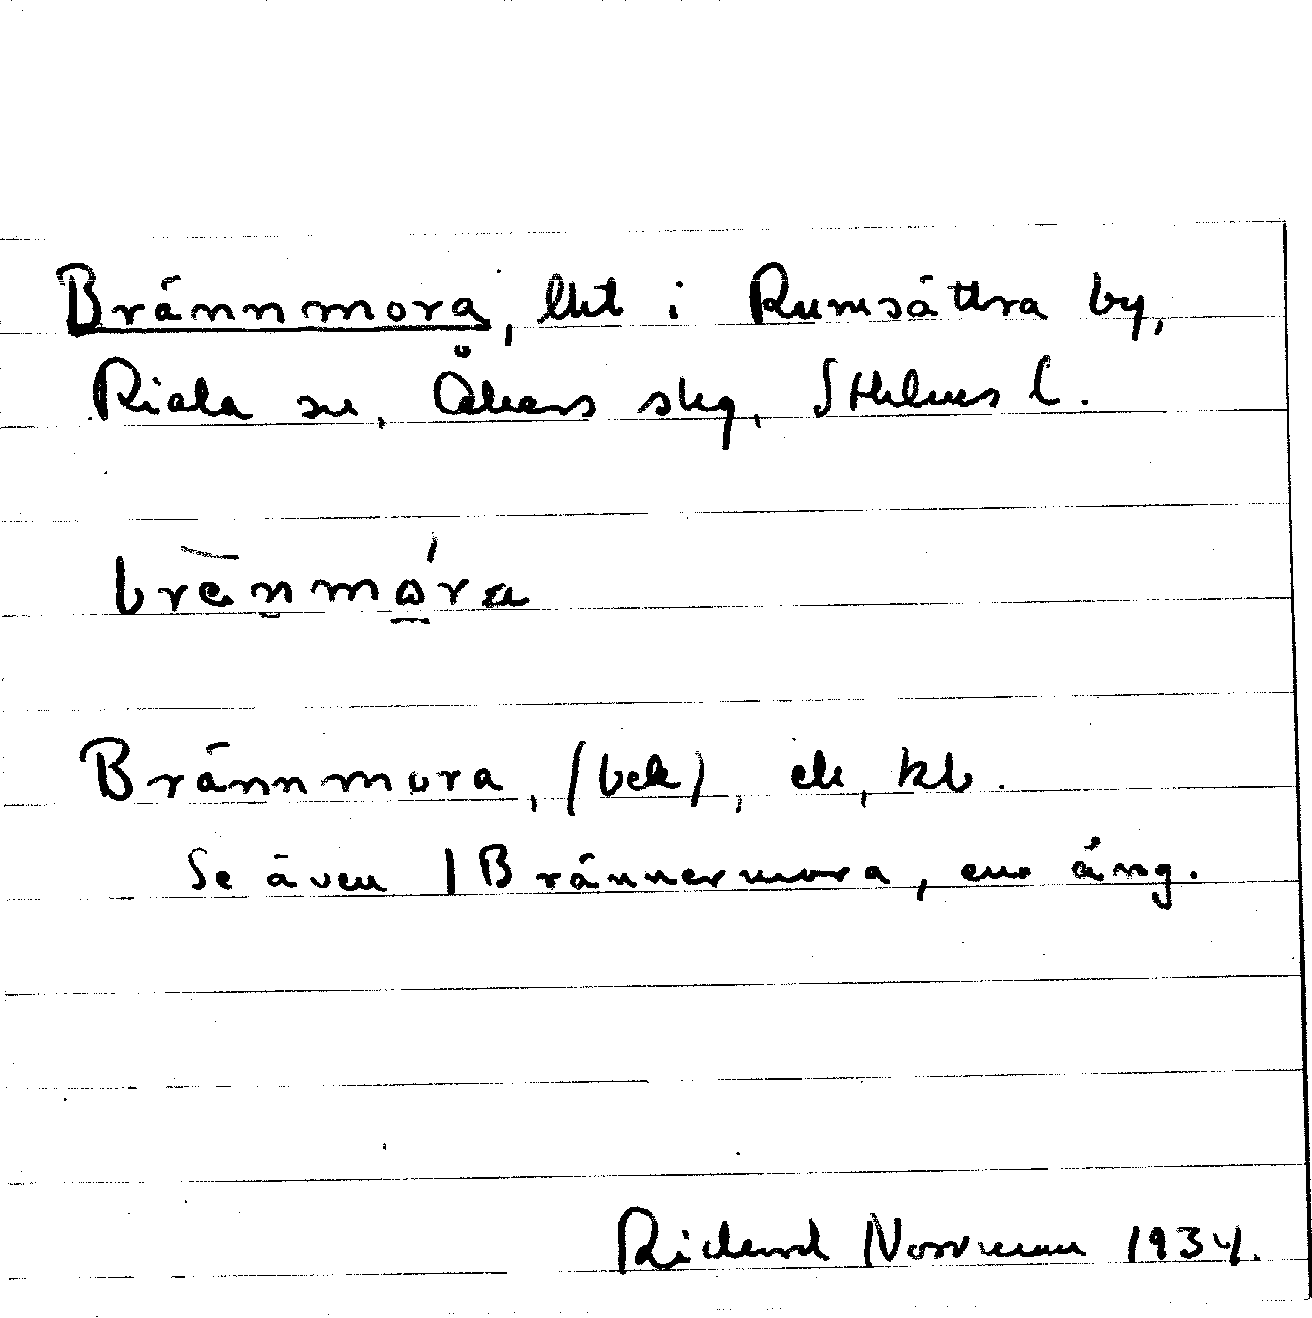 Brännmora, lht i Rumsättra by,
Riala sn, Åkers skg, Sthlms l.
brēnmώ̱ra
Brännmora, (bek), ek, kb.
Se även 1 Brännermora, en äng.
Rickard Norrman 1934.